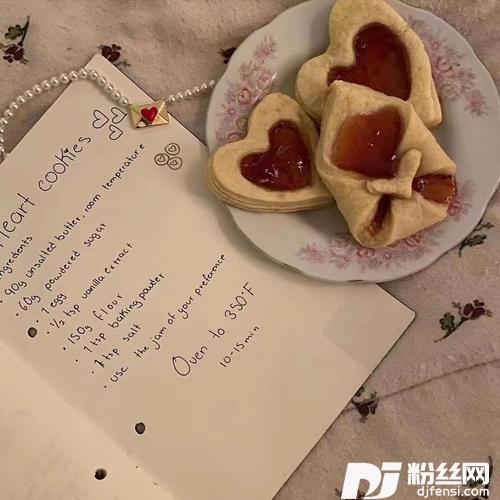 Heart cookies
ingredients
• 90g unsalted butter, room temperature
• 60g powdered sugar
• 1 egg
• 1/2 tsp vanilla extract
• 150g flour
• 1 tsp baking powder
• 1 tsp salt
• use the jam of your preference
Oven to 350°F
10-15 min
DJ 粉丝网
djfensi.com